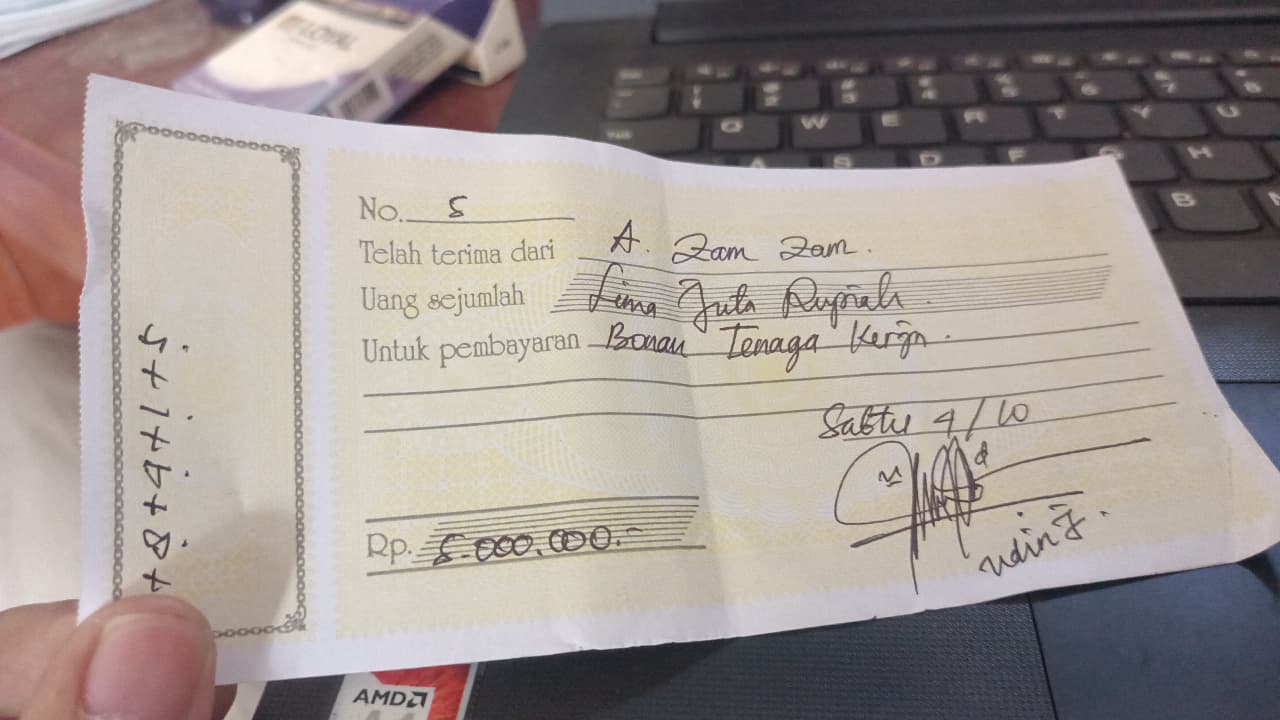 No. 5
Telah terima dari A. Zam Zam.
Uang sejumlah Lima Juta Rupiah.
Untuk pembayaran Bonan Tenaga Kerja.
Sabtu 4/10
Rp. 5.000.000.-
Udin J.
5+1+6+8+
LOYAL
AMD
Q W E R T Y U
A S D F G H
B N